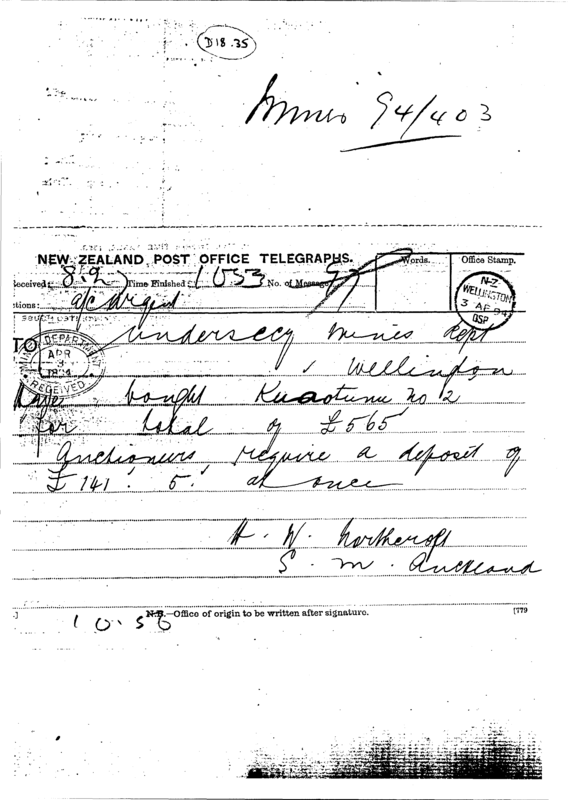 D18.35
Mines 94/403
NEW ZEALAND POST OFFICE TELEGRAPHS.
Words.
Office Stamp.
eceived: 8.2 Time Finished: 1053 No. of Message
tions: a/c urgent
N-Z
WELLINGTON
3 AP 94
DEPARTMENT
APR
3
RECEIVED
TO Undersecy Mines Dept
Wellington
Have bought Kuaotunu No 2
for total of £565
Auctioneers require a deposit of
£141. 5. at once
H. W. Northcroft
S. M. Auckland
N.B.—Office of origin to be written after signature.
[779
10.56